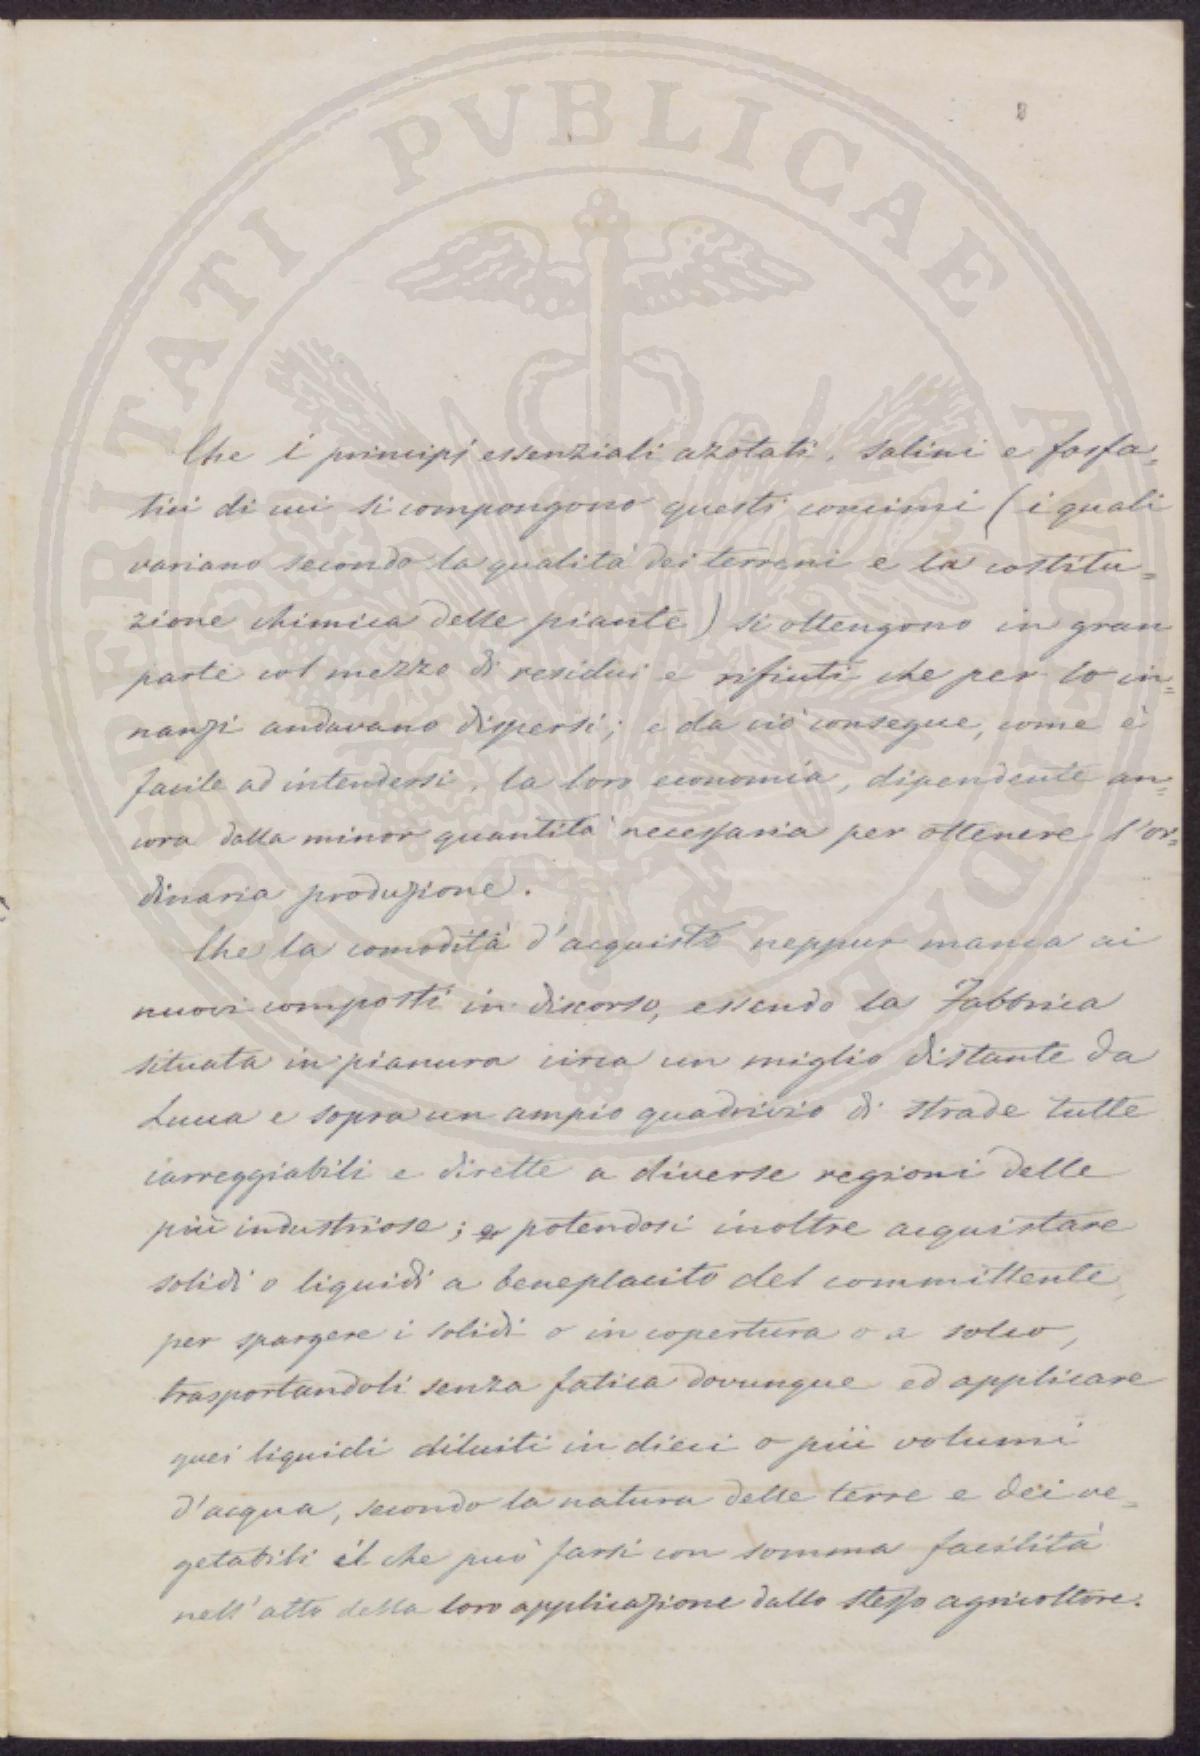 PROSPERITATI PVBLICAE AVGENDAE
Che i principj essenziali azotati, salini e fosfa-
tici di cui si compongono questi concimi (i quali
variano secondo la qualità dei terreni e la costitu=
zione chimica delle piante) si ottengono in gran
parte col mezzo di residui e rifiuti che per lo in=
nanzi andavano dispersi; e da ciò consegue, come è
facile ad intendersi, la loro economia, dipendente an=
cora dalla minor quantità necessaria per ottenere l'or=
dinaria produzione.
Che la comodità d'acquisto neppur manca ai
nuovi composti in discorso, essendo la Fabbrica
situata in pianura circa un miglio distante da
Lucca e sopra un ampio quadrivio di strade tutte
carreggiabili e dirette a diverse regioni delle
più industriose; e potendosi inoltre acquistare
solidi o liquidi a beneplacito del committente,
per spargere i solidi o in copertura o a solco,
trasportandoli senza fatica dovunque ed applicare
quei liquidi diluiti in dieci o più volumi
d'acqua, secondo la natura delle terre e dei ve=
getabili il che può farsi con somma facilità
nell'atto della loro applicazione dallo stesso agricoltore.